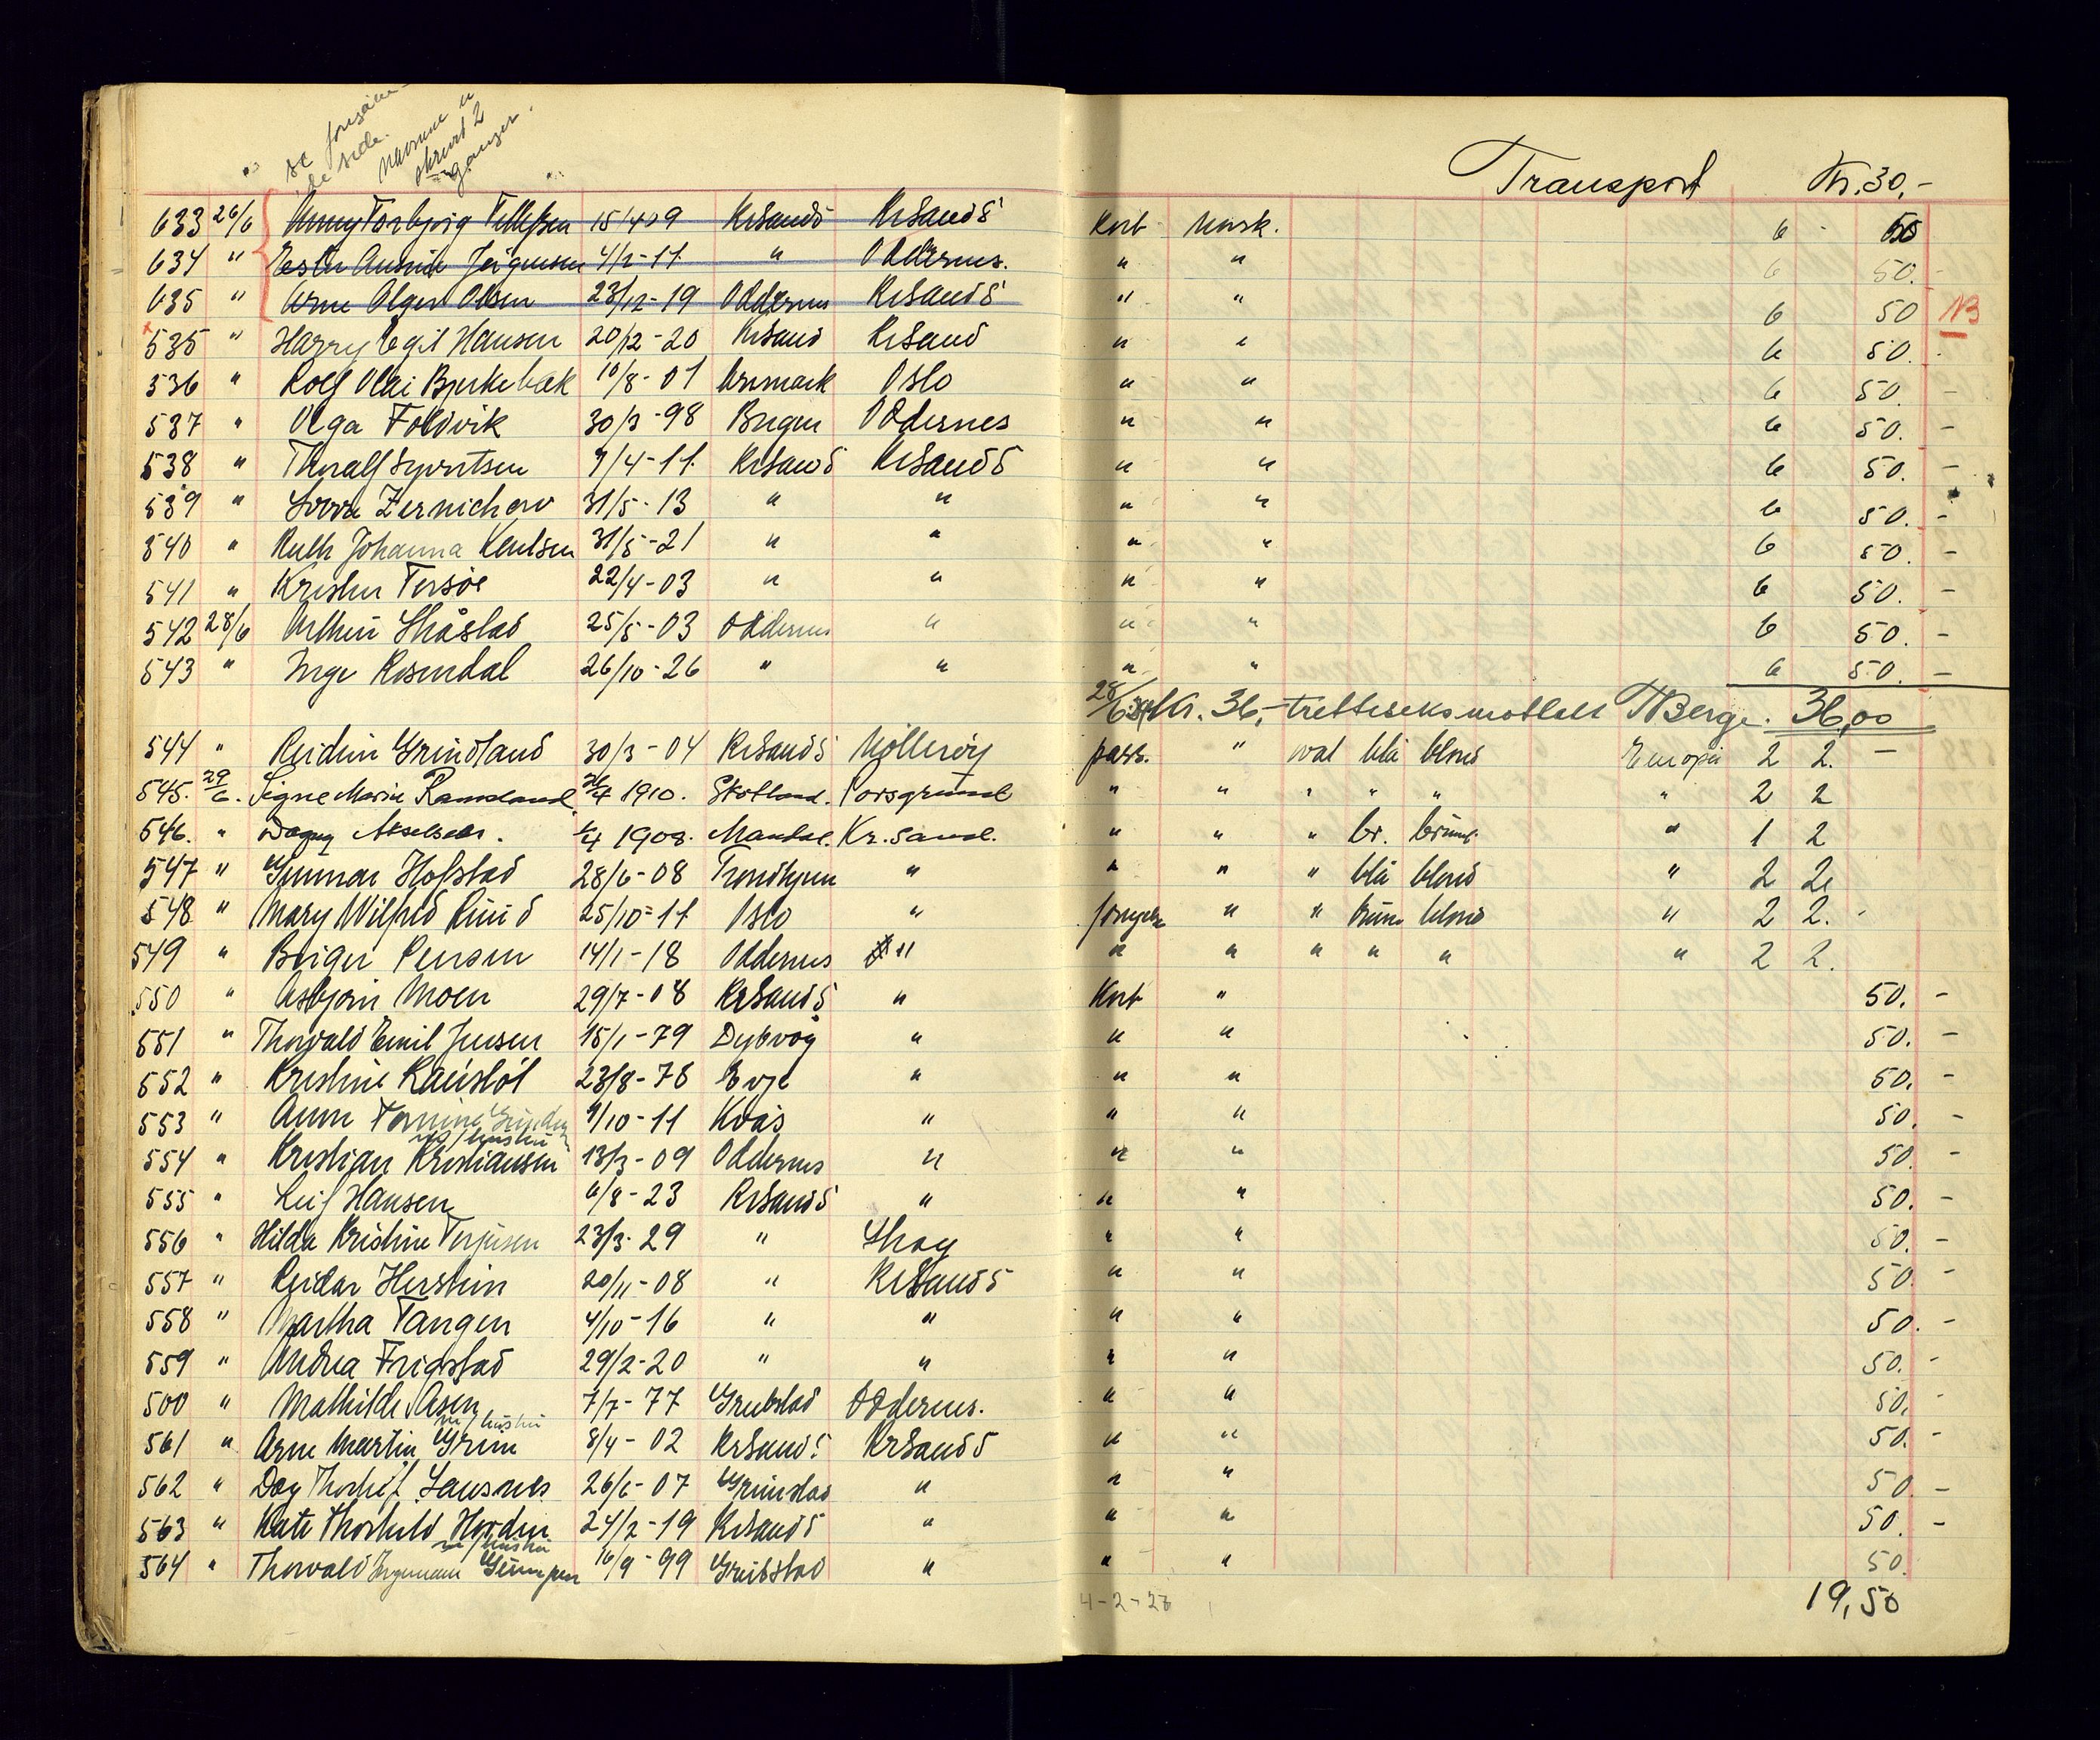 se foregåen-
de side.
Navnene er
skrevet 2
ganger.
Transport Kr. 30,-
633 26/6 Anny Torbjørg Tellefsen 15/4-09 KrSands KrSands Kort norsk. 6 50
634 " Ester Jørgensen 4/2-11 " Oddernes. " " 6 50.-
635 " Arne Olsen 23/12-19 Oddernes KrSands " " 6 50 NB
535 " Harry Egil Hansen 20/12-20 KrSand KrSand " " 6 50.-
536 " Rolf Olai Bjerkebæk 10/8-01 Aremark Oslo " " 6 50.-
537 " Olga Foldvik 30/3-98 Bergen Oddernes " " 6 50.-
538 " Thoralf Syvertsen 9/4-11. KrSands KrSands " " 6 50.-
539 " Zernichow 31/5-13 " " " " 6 50.-
540 " Ruth Johanna Knutsen 31/5-21 " " " " 6 50.-
541 " Tersøe 22/4-03 " " " " 6 50.-
542 28/6 Skåstad 25/5-03 Oddernes " " " 6 50.-
543 " Inge Rosendal 26/10-26 " " " " 6 50.-
28/6 34 Kr. 36,- trettiseks mottatt TBerge. 36,00
544 " Reidun Grindland 30/3-04 KrSands Møllerøy pass. " oval blå blond Europa 2 2.-
545. 29/6. Signe Marie Ramsland 26/4 1910. Skotland. Porsgrund " " " " " " 2 2
546. " Dagny Akselsen. 6/4 1908. Mandal. Kr.sand. " " " br. brun. " 1 2
547 " Gunnar Hofstad 28/6-08 Trondhjem " " " " blå blond " 2 2
548 " Mary Wilfred Ruud 25/10-11 Oslo " fornyelse " " brun blond " 2 2.-
549 " Birger Persen 14/1-18 Oddernes " " " " " " " 2 2.
550 " Asbjørn Moen 29/7-08 KrSands " Kort " 50.-
551 " Thorvald Emil Jensen 15/1-79 Dybvåg " " " 50.-
552 " Kristine Raustøl 23/8-78 Evje " " " 50.-
553 " Anne Tomine 9/10-11 Kvås " " " 50.-
m/hustru
554 " Kristian Kristiansen 13/3-09 Oddernes " " " 50.-
555 " Leif Hansen 6/8-23 KrSands " " " 50.-
556 " Hilda Kristine Terjesen 23/3-29 " " " 50.-
557 " Reidar Herstein 20/11-08 " KrSands " " 50.-
558 " Martha Tangen 4/10-16 " " " " 50.-
559 " Andrea Frigstad 29/2-20 " " " " 50.-
500 " Mathilde Åsen 7/7-77 Grubstad Oddernes. " " 50.-
m/hustru
561 " Arne Martin Grim 8/4-02 KrSands KrSands " " 50.-
562 " Dag Thorleif 26/6-07 Grimstad " " " 50.-
563 " Kate Thorhild Horden 24/2-19 KrSands " " " 50.-
m/hustru
564 " Thorvald Ingemann 16/9-99 " " " 50.
4-2-26 19,50